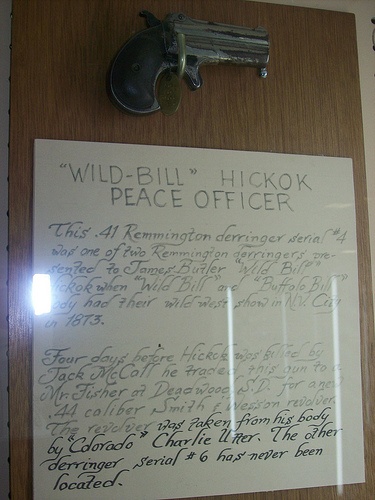 "WILD-BILL" HICKOK
PEACE OFFICER
This .41 Remmington derringer serial #4
was one of two Remmington derringers pre-
sented to James Butler "Wild Bill"
Hickok when "Wild Bill" and "Buffalo Bill"
Cody had their wild west show in N.Y. City
in 1873.
Four days before Hickok was killed by
Jack McCall he traded this gun to a
Mr. Fisher at Deadwood S.D. for a new
.44 caliber Smith & Wesson revolver.
The revolver was taken from his body
by "Colorado" Charlie Utter. The other
derringer serial #6 has never been
located.